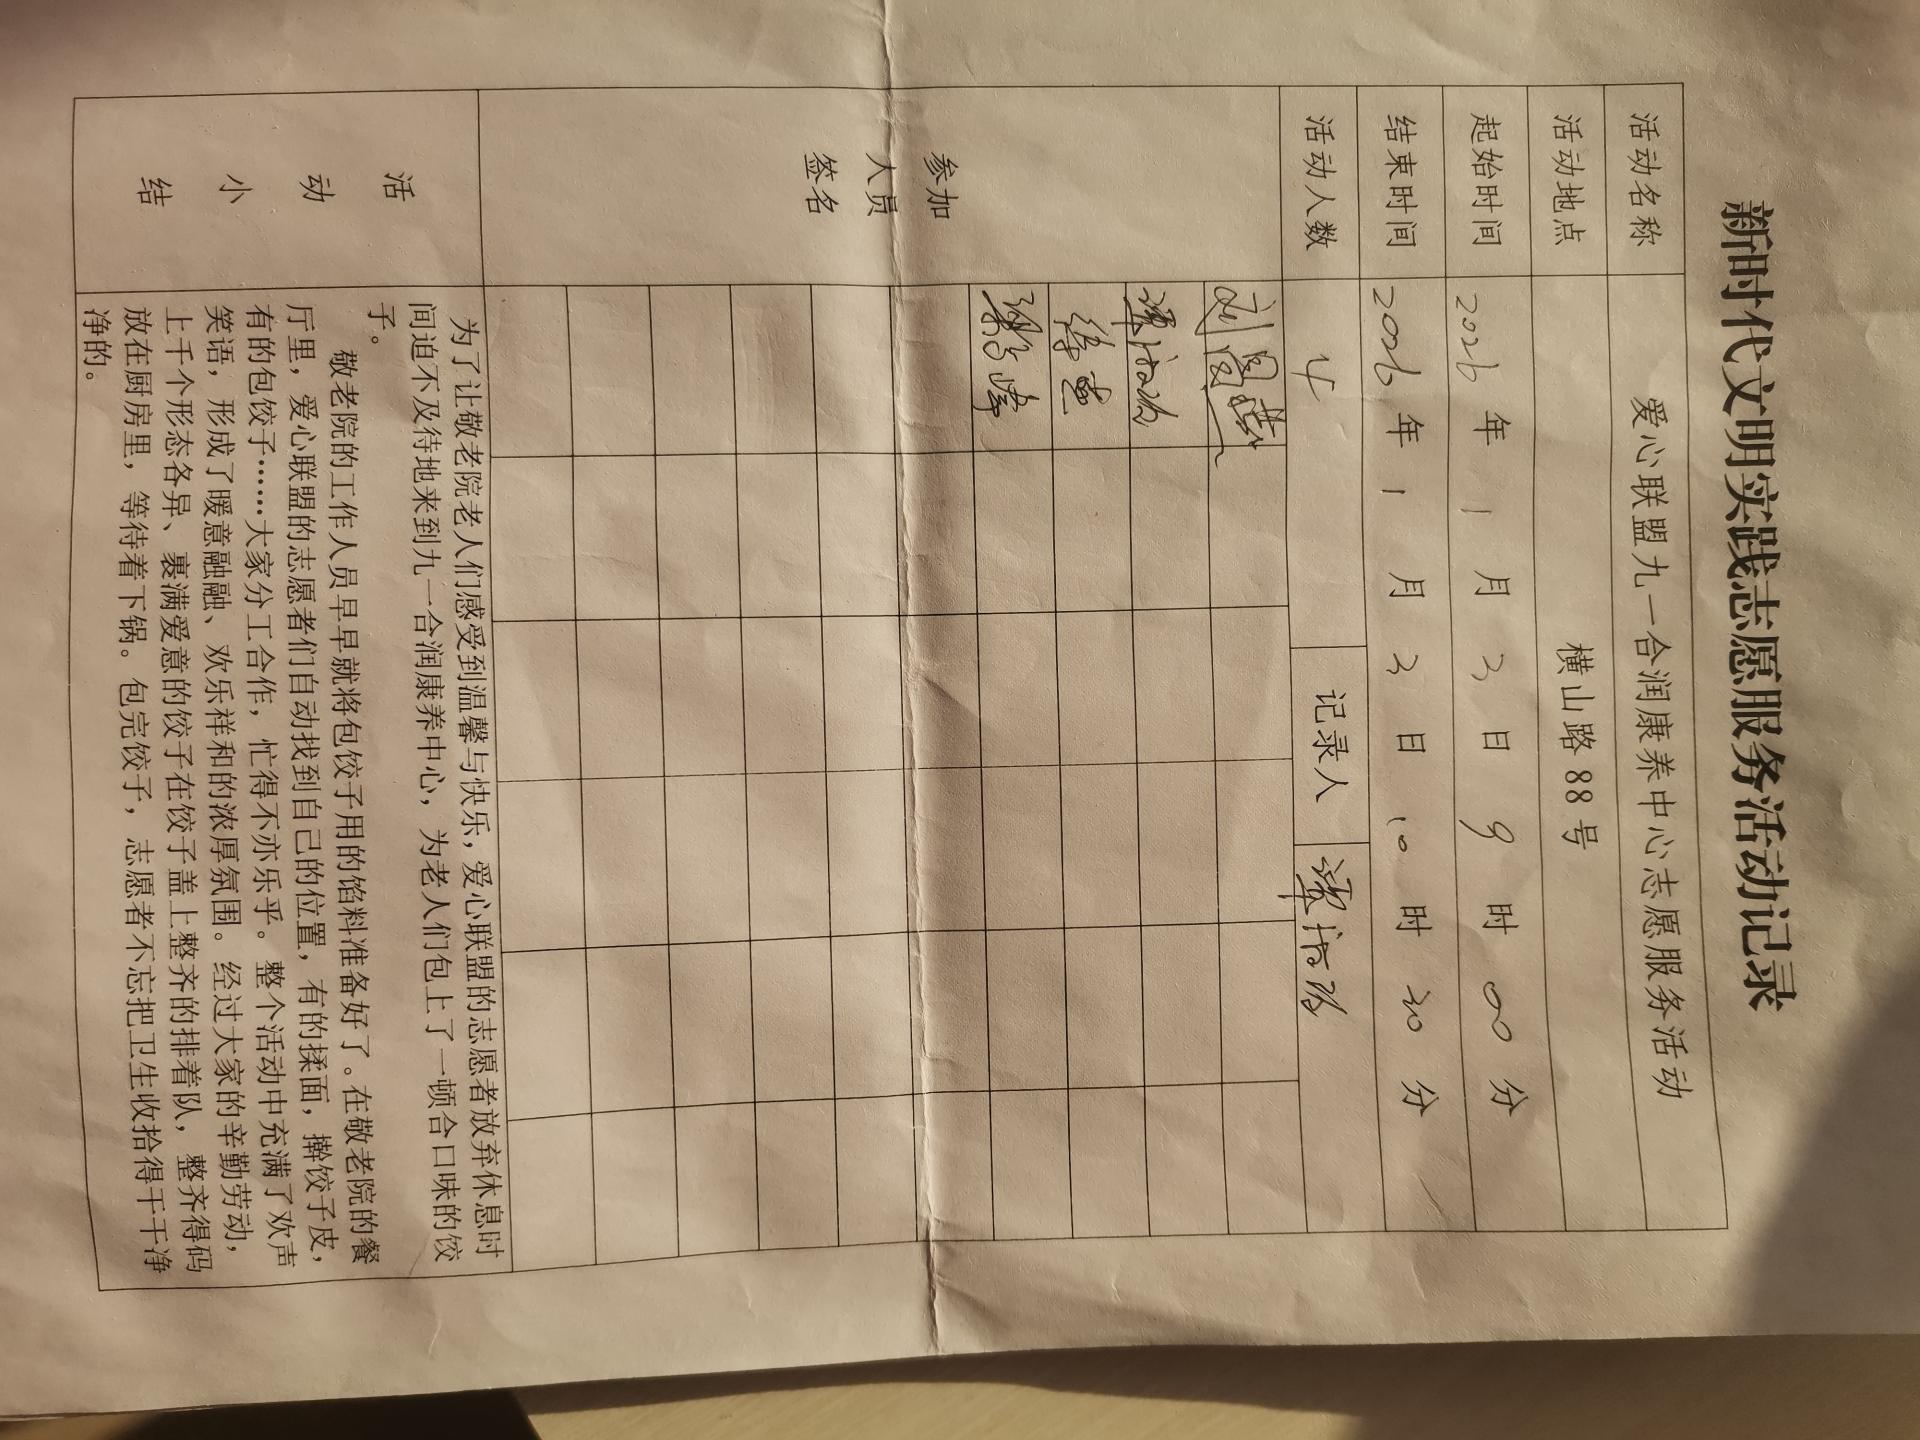 新时代文明实践志愿服务活动记录
活动名称 爱心联盟九一合润康养中心志愿服务活动
活动地点 横山路88号
起始时间 2026年1月3日9时00分
结束时间 2026年1月3日10时30分
活动人数 4 记录人
参加
人员
签名
活
动
小
结
为了让敬老院老人们感受到温馨与快乐，爱心联盟的志愿者放弃休息时
间迫不及待地来到九一合润康养中心，为老人们包上了一顿合口味的饺
子。
敬老院的工作人员早早就将包饺子用的馅料准备好了。在敬老院的餐
厅里，爱心联盟的志愿者们自动找到自己的位置，有的揉面，擀饺子皮，
有的包饺子……大家分工合作，忙得不亦乐乎。整个活动中充满了欢声
笑语，形成了暖意融融、欢乐祥和的浓厚氛围。经过大家的辛勤劳动，
上千个形态各异、裹满爱意的饺子在饺子盖上整齐的排着队，整齐得码
放在厨房里，等待着下锅。包完饺子，志愿者不忘把卫生收拾得干干净
净的。